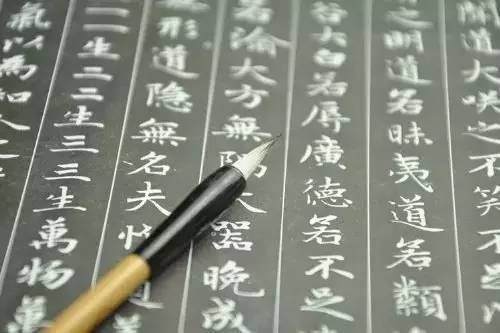 道大笑之不笑
之明道若昧夷道若類
谷大白若辱廣德若不足
若渝大方無隅大器晚成
形道隐無名夫
生二二生三三生萬物萬
氣以為和人